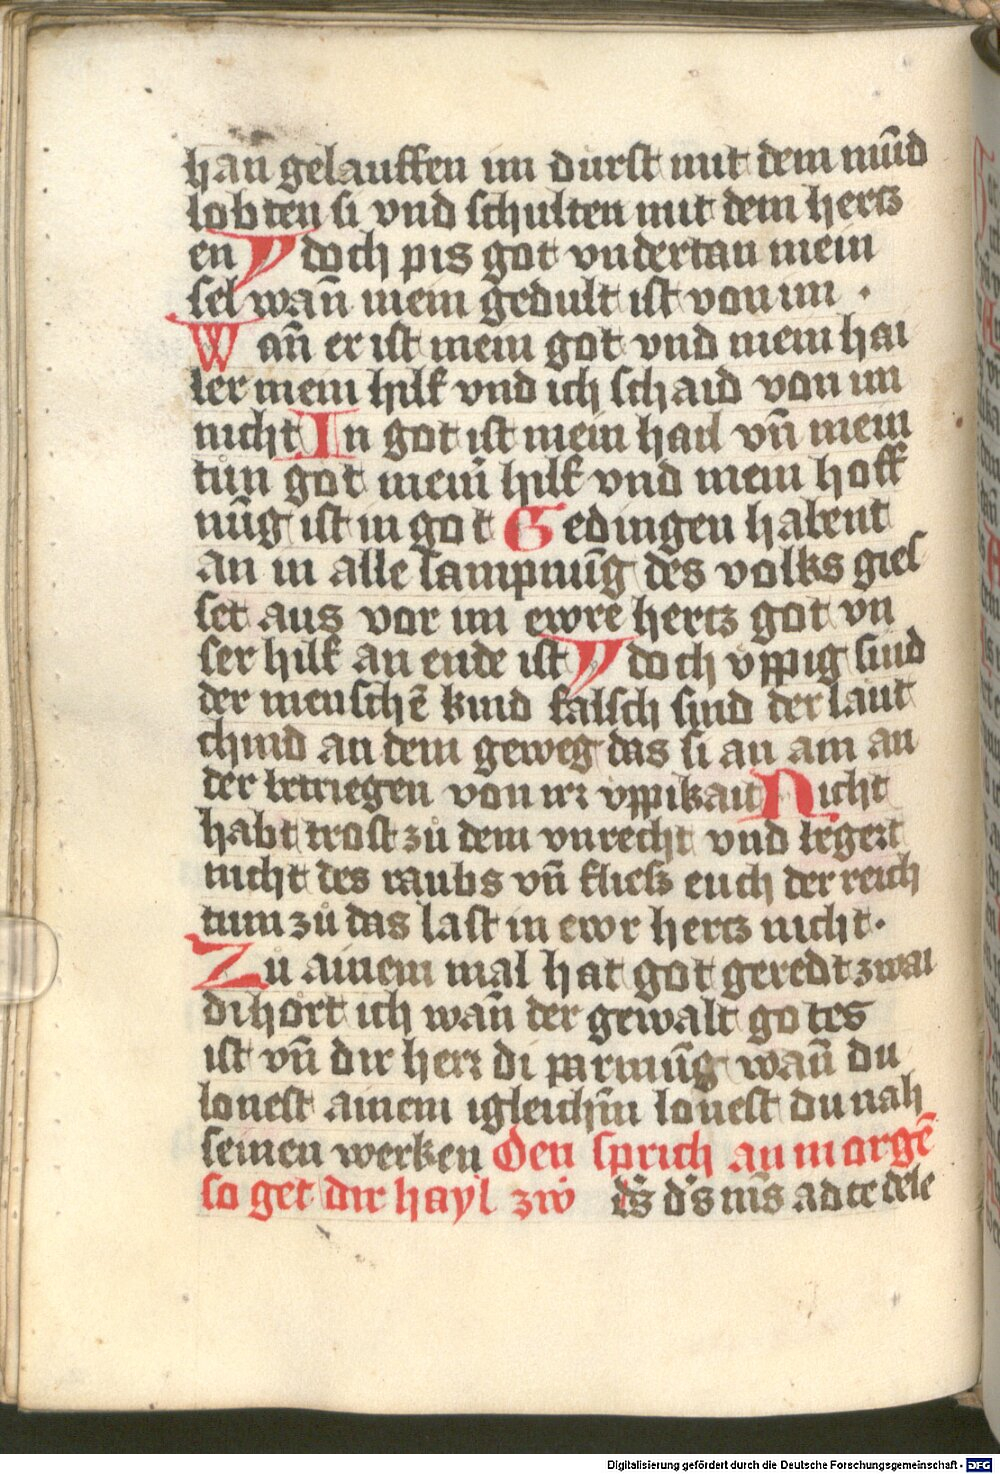 han gelauffen im durst mit dem mūd
lobten si vnd schulten mit dem hertz
en Ydoch pis got vndertan mein
sel wañ mein gedult ist von im ·
Wañ er ist mein got vnd mein hai
ler mein hilf vnd ich schaid von im
nicht In got ist mein hail vñ mein
tun got meiñ hilf vnd mein hoff
nūg ist in got Gedingen habent
an in alle sampnūg des volks gies
set aus vor im ewre hertz got vn
ser hilf an ende ist Ydoch vppig sind
der menschē kind falsch sind der laut
chind an dem geweg das si an am an
der betriegen von irr vppikait Nicht
habt trost zů dem vnrecht vnd begert
nicht des raubs vñ flieſz euch der reich
tum zů das last in ewr hertz nicht·
Zu ainem mal hat got geredt zwai
di hort ich wañ der gewalt gotes
ist vñ dir herr di parmūg wañ du
lonest ainem igleichm̄ lonest du nah
seinen werken Den sprich an morgē
so get dir hayl zw̉ ds̄ ds̄ ms̄ ad te dele
Digitalisierung gefördert durch die Deutsche Forschungsgemeinschaft - DFG